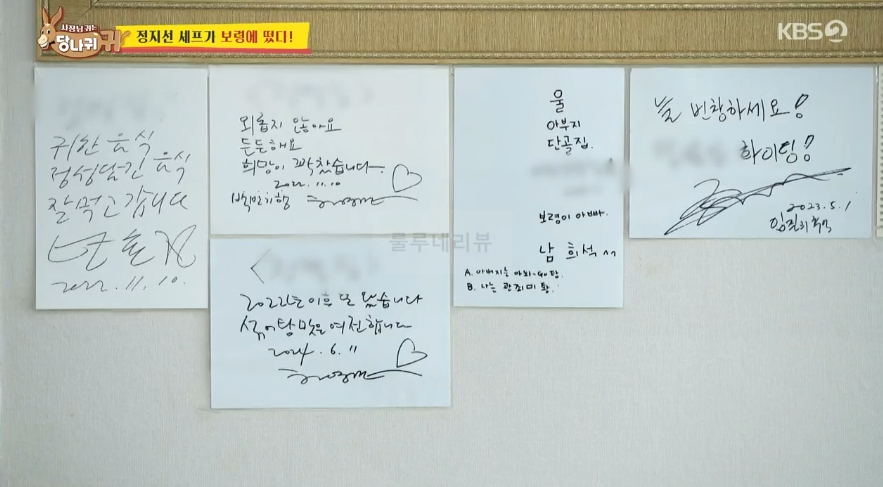 사장님 귀는
당나귀 귀
정지선 셰프가 보령에 떴다!
KBS2
귀한 음식
정성담긴 음식
잘먹고 갑니다
2022.11.10.
외롭지 않아요
든든해요
희망이 꽉찼습니다
2022.11.10
백반기행
2022년 이후 또 왔습니다
맛은 여전합니다
2024.6.11
울
아부지
단골집.
보령이 아빠.
남희석
A. 아버지는
B. 나는
늘 번창하세요!
화이팅!!
2023.5.1
룰루네리뷰